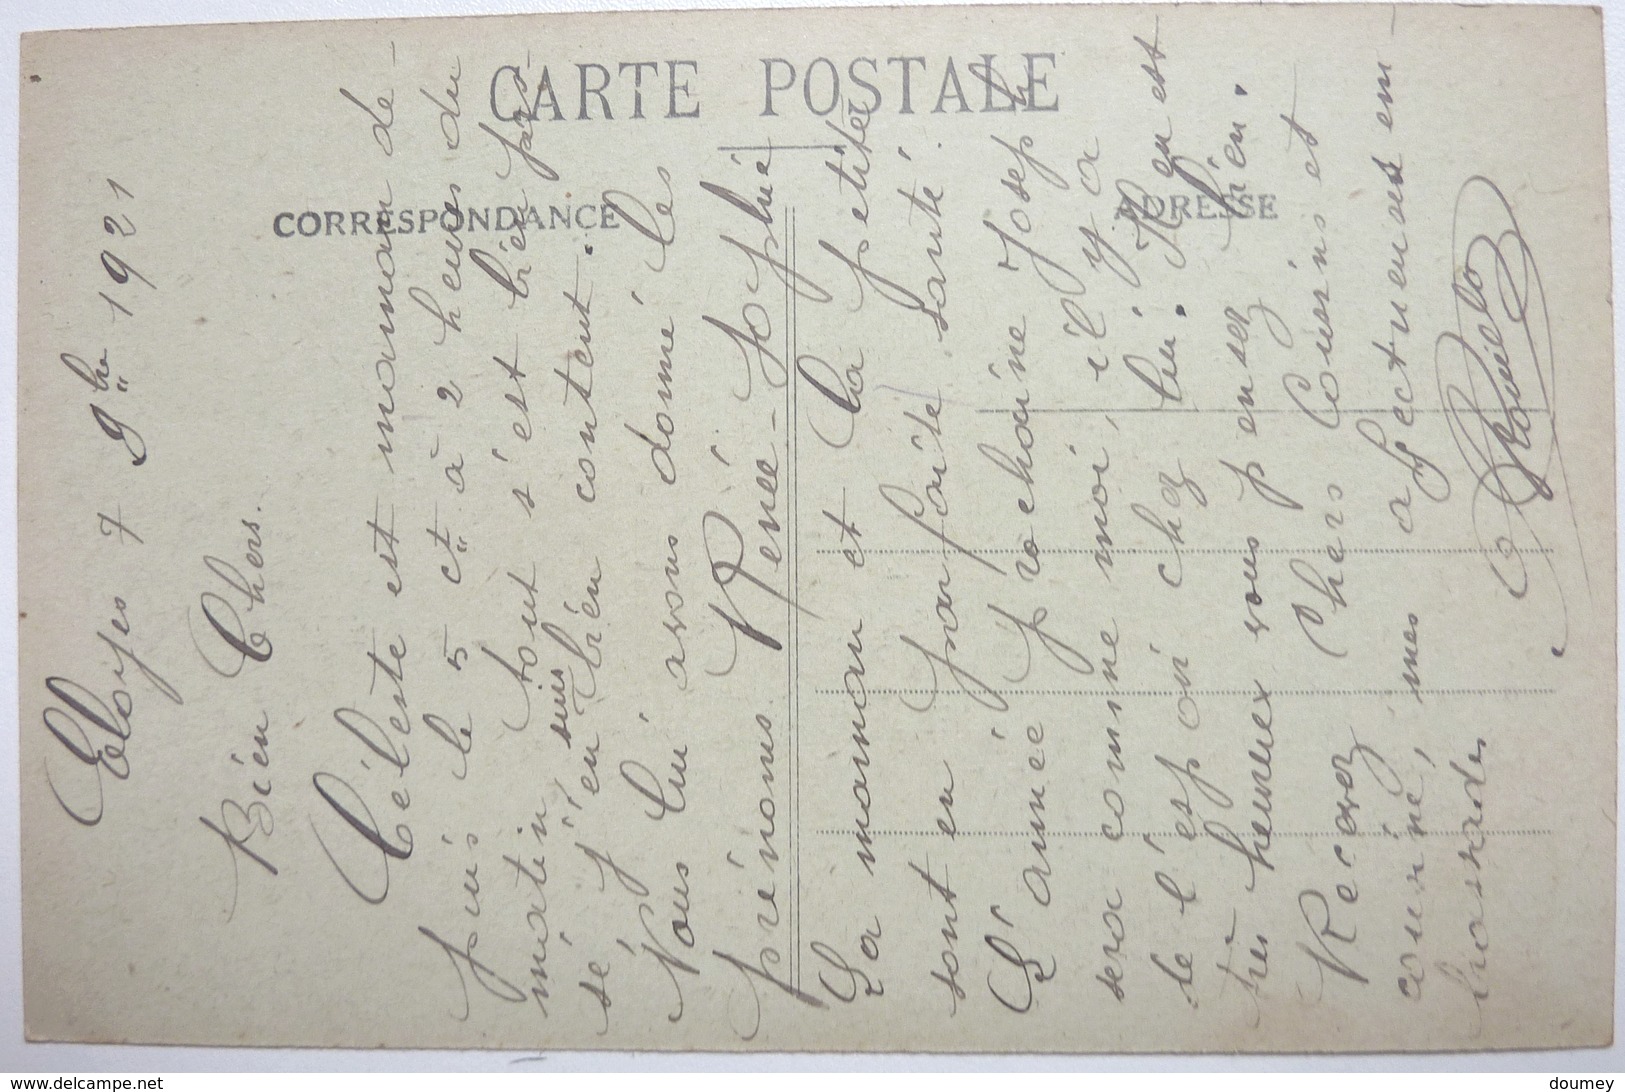 CARTE POSTALE
CORRESPONDANCE
ADRESSE
Eloyes 7 9bre 1921
Bien Chers.
Céleste est maman de-
puis le 5 ct à 2 heures du
matin, tout s'est bien pas-
sé j'en suis bien content.
Nous lui avons donné les
prénoms Renée-Sophie
La maman et la petite
sont en parfaite santé.
L'année prochaine Joseph
sera comme moi, il y a
de l'espoir chez lui. Il en est
très heureux vous pensez bien.
Recevez Chers Cousins et
cousine, mes affectueuses em-
brassades
www.delcampe.net
doumey